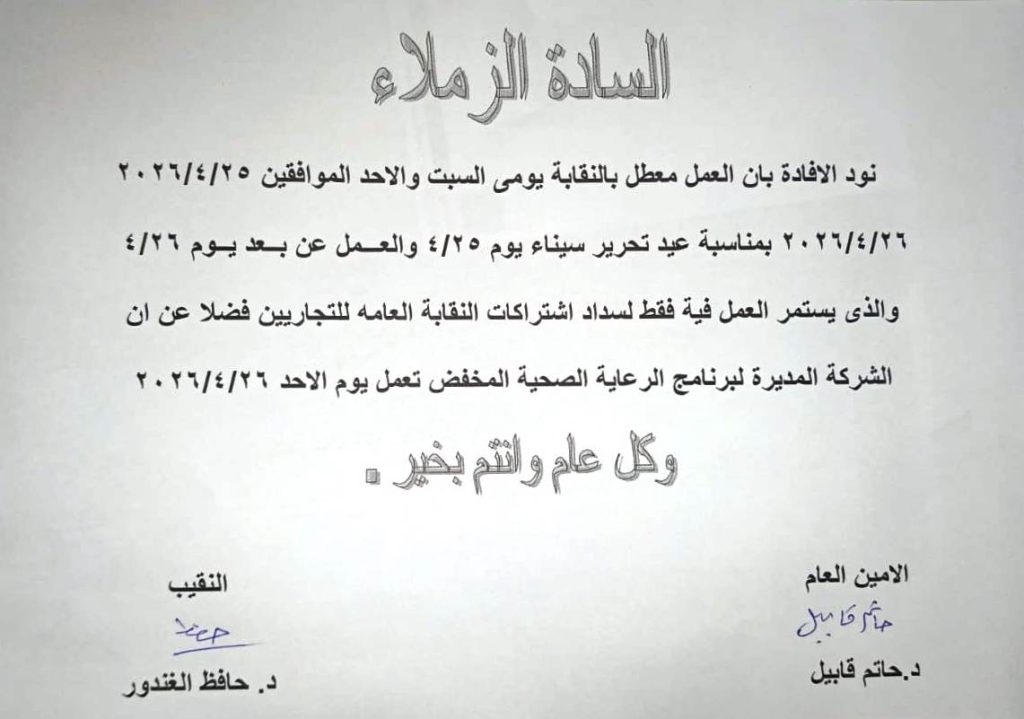 السادة الزملاء
نود الافادة بان العمل معطل بالنقابة يومى السبت والاحد الموافقين ٢٠٢٦/٤/٢٥
٢٠٢٦/٤/٢٦ بمناسبة عيد تحرير سيناء يوم ٤/٢٥ والعــمل عن بــعد يــوم ٤/٢٦
والذى يستمر العمل فية فقط لسداد اشتراكات النقابة العامه للتجاريين فضلا عن ان
الشركة المديرة لبرنامج الرعاية الصحية المخفض تعمل يوم الاحد ٢٠٢٦/٤/٢٦
وكل عام وانتم بخير .
الامين العام
حاتم قابيل
د.حاتم قابيل
النقيب
د. حافظ الغندور